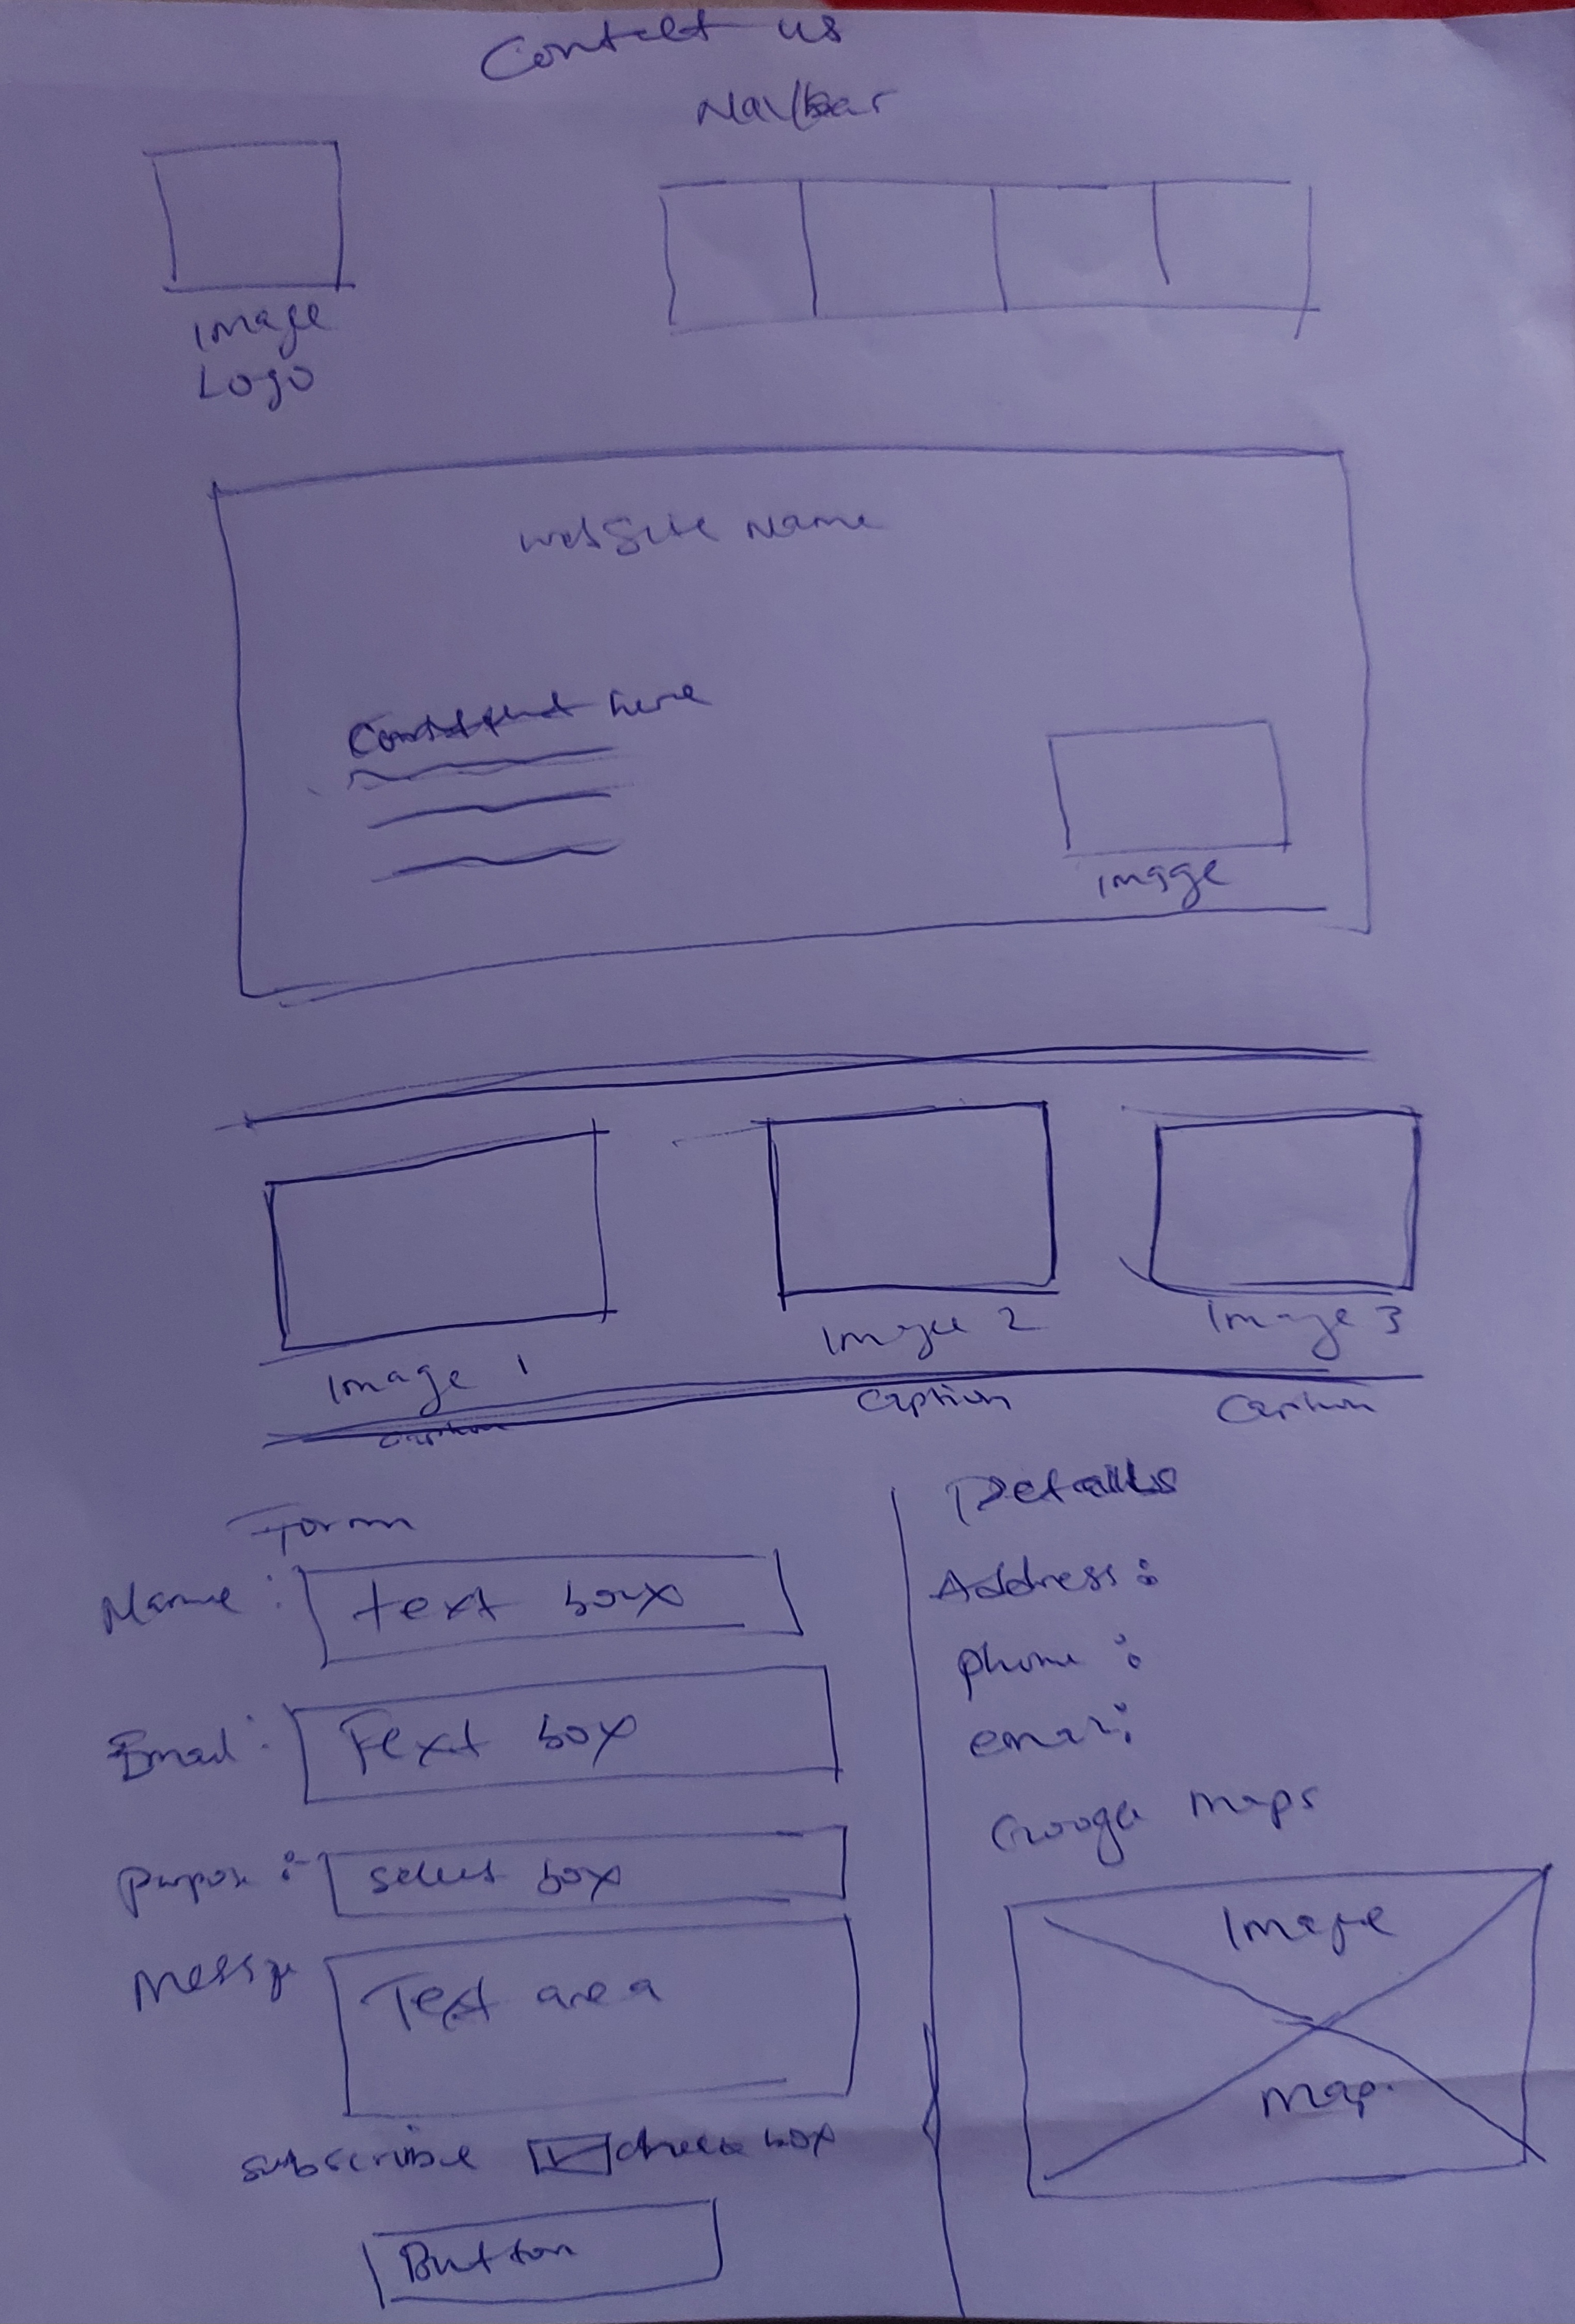 Contact us
Navbar
Image
Logo
Website Name
Content here
Image
Image 1
Image 2
Image 3
Caption
Caption
Caption
Form
Name :
Text box
Email :
Text box
Purpose :
select box
Message
Text area
subscribe
check box
Button
Details
Address :
phone :
email :
Google Maps
Image
Map